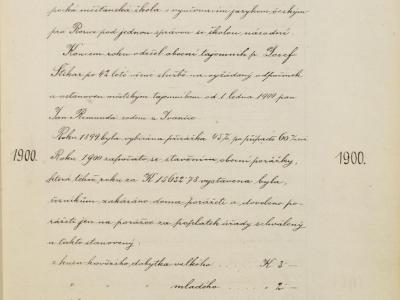 měšťanská škola s vyučovacím jazykem českým
pro Rosice pod jednou správou se školou národní.
Koncem roku odešel obecní tajemník p. Josef
po 42 leté službě na odpočinek
a ustanoven městským tajemníkem od 1 ledna 1900 pan
Jan rodem z Ivančic
Roku 1899 byla vybírána přirážka 45%, po případě 60%
1900.
Roku 1900 započato se stavením obecní porážky,
která téhož roku za K 15622·78 vystavena byla,
řezníkům zakázáno doma porážeti a dovoleno po-
rážeti jen na porážce za poplatek úřady schválený
a takto stanovený:
z kusu hovězího dobytka velkého . . . . K 3 —
" " " mladého . . " 2 —
1900.